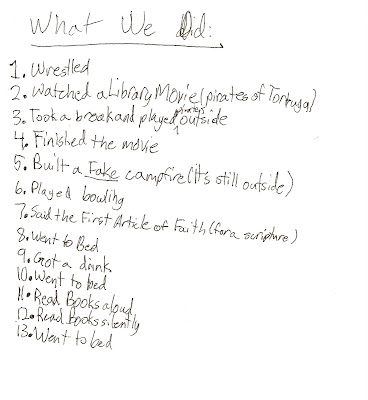 What We Did:
1. Wrestled
2. Watched a Library Movie (pirates of Tortuga)
3. Took a break and played pirates outside
4. Finished the movie
5. Built a Fake campfire (it's still outside)
6. Played bowling
7. Said the First Article of Faith (for a scripture)
8. Went to Bed
9. Got a drink
10. Went to bed
11. Read Books aloud
12. Read Books silently
13. Went to bed